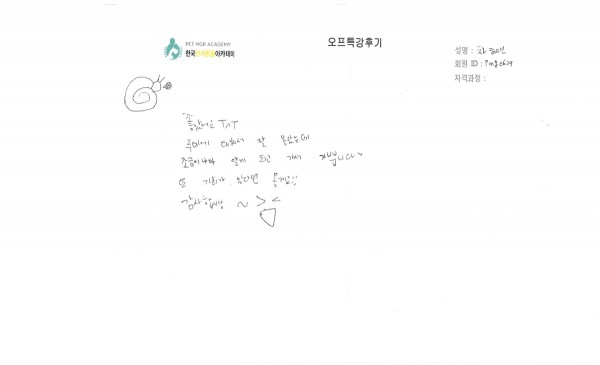 PET MGR ACADEMY
한국반려동물아카데미
오프특강후기
성명 : 차
회원 ID :
자격과정 :
좋았어요 T^T
루미에 대해서 잘 몰랐는데
조금이나마 알게 되고 가서 기쁩니다~
또 기회가 있다면 올게요!!
감사합니당 ~ > <